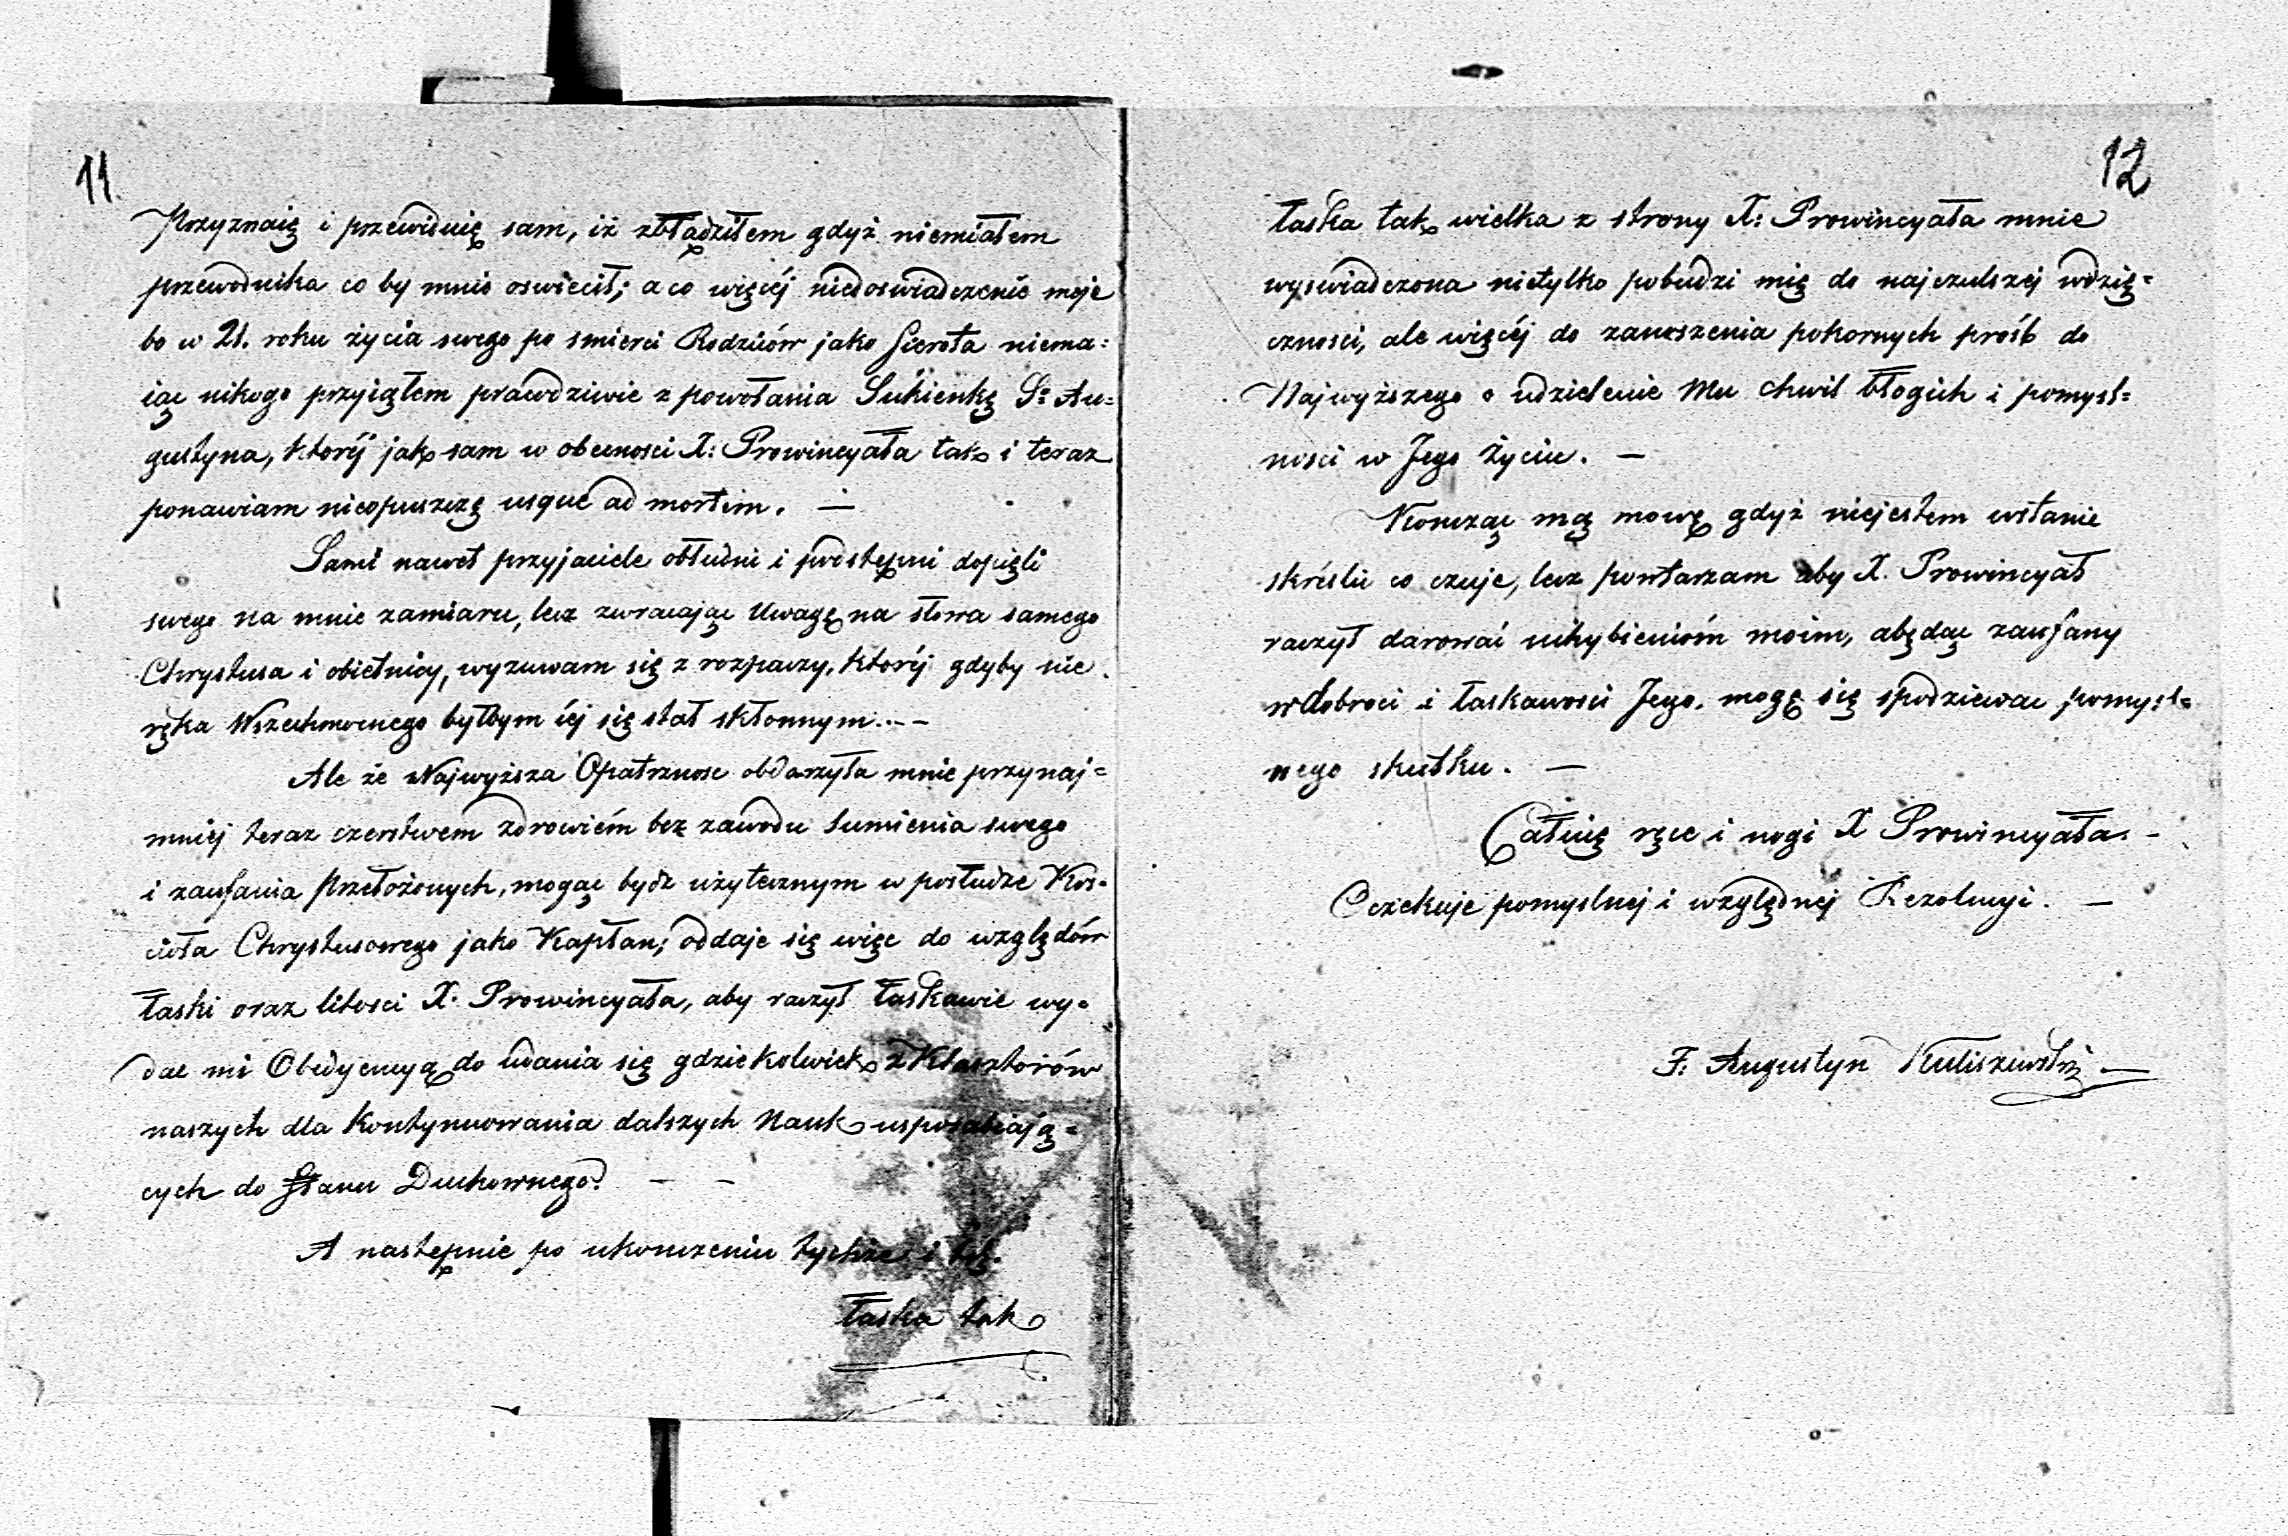 11
Przyznaię i przewiduię sam, iż zbłądziłem gdyż niemiałem
przewodnika co by mnie oswiecił; a co więcéj niedoswiadczenie moje
bo w 21. roku życia swego po smierci Rodziców jako Sierota niema=
iąc nikogo przyiąłem prawdziwie z powołania Sukienkę S: Au=
gustyna, któréj jak sam w obecnosci X: Prowincyała tak i teraz
ponawiam nieopuszczę usque ad mortim. —
Sami nawet przyjaciele obłudni i podstępni dopięli
swego na mnie zamiaru, lecz zwracając Uwagę na słowa samego
Chrystusa i obietnicy, wyzuwam się z rozpaczy, któréj gdyby nie
ręka Wszechmocnego byłbym iéj się stał skłonnym. —
Ale że Najwyższa Opatrznosc obdarzyła mnie przynaj=
mniéj teraz czerstwem zdrowiém bez zawodu Sumienia swego
i zaufania Przełożonych, mogąc bydz użytecznym w posłudze Kos=
cioła Chrystusowego jako Kapłan; oddaje się więc do względów
łaski oraz litosci X. Prowincyała, aby raczył łaskawie wy=
dac mi Obedyencyą do udania się gdziekolwiek z Klasztorów
naszych dla kontynuowania dalszych Nauk usposabiają=
cych do Stanu Duchownego. — —
A następnie po ukonczeniu tychże i
łaska tak
12
łaska tak wielka z strony X: Prowincyała mnie
wyswiadczona nietylko pobudzi mię do najczulszéj wdzię=
cznosci, ale więcéj do zanoszenia pokornych próśb do
Najwyższego o udzielenie Mu chwil błogich i pomysl=
nosci w Jego Życiu. —
Koncząc mą mowę gdyż niejestem wstanie
skréslic co czuje, lecz powtarzam aby X. Prowincyał
raczył darowac uchybieniom moim, abędąc zaufany
w dobroci i łaskawosci Jego, mogę się spodziewac pomysl=
nego skutku. —
Całuię ręce i nogi X Prowincyała. —
Oczekuje pomyslnej i względnéj Rezolucyi. —
F. Augustyn Kuliszewski